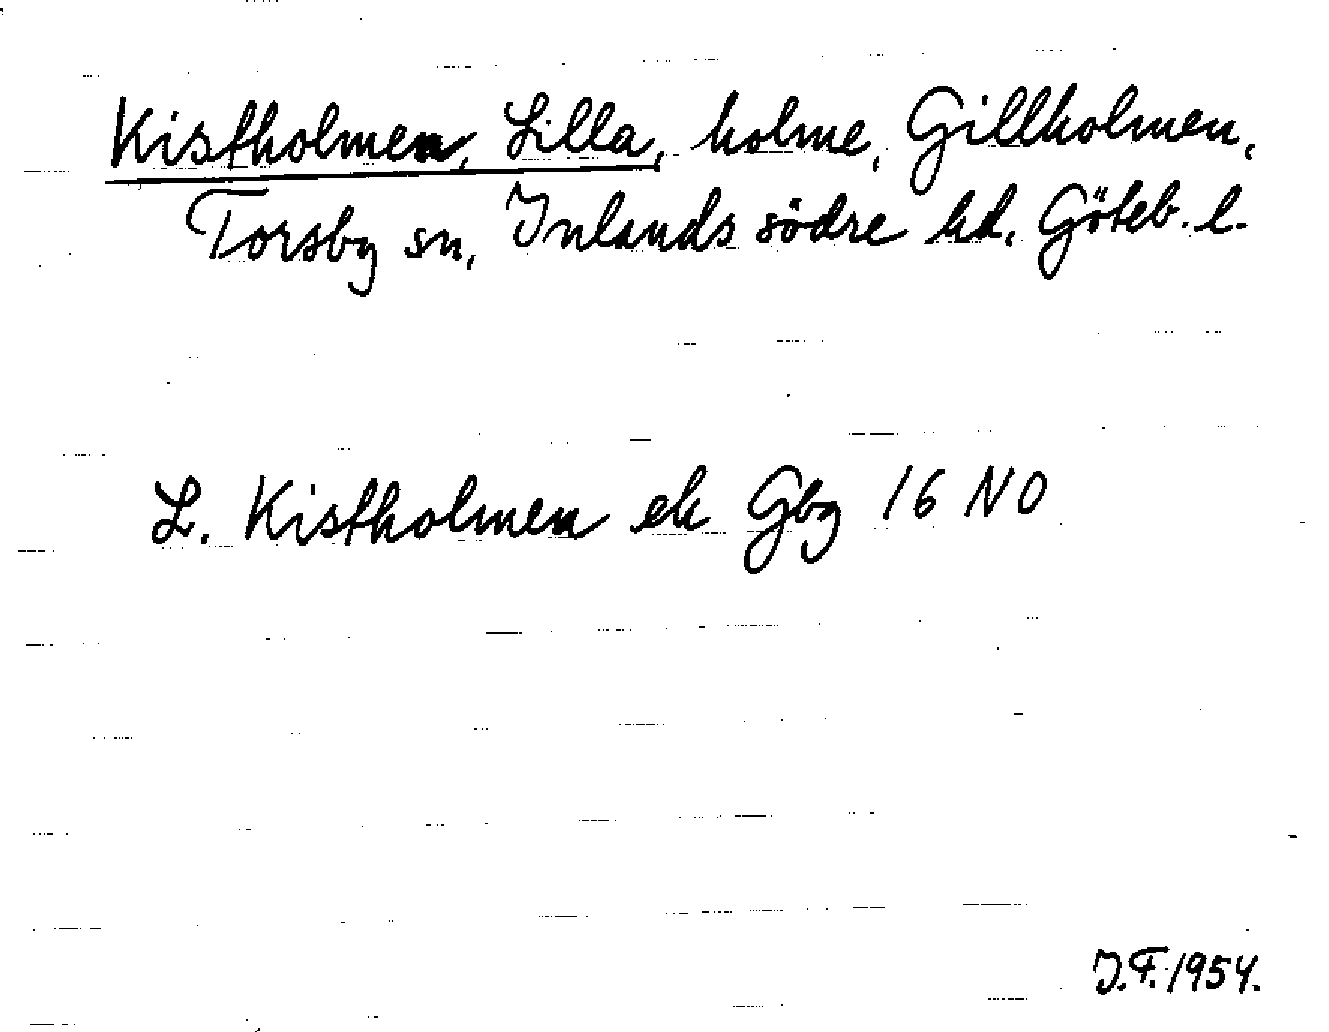 Kistholmen, Lilla, holme, Gillholmen,
Torsby sn, Inlands södre hd, Göteb. l.
L. Kistholmen ek Gbg 16 NO
J.F. 1954.